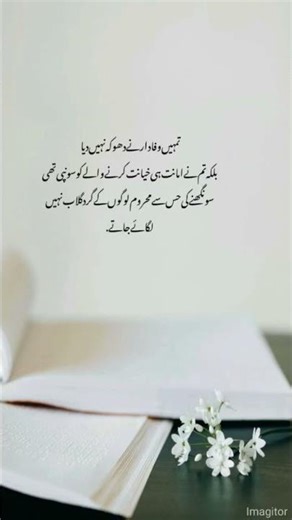 تمہیں وفادار نے دھوکہ نہیں دیا
بلکہ تم نے امانت ہی خیانت کرنے والے کو سونپی تھی
سونگھنے کی حس سے محروم لوگوں کے گرد گلاب نہیں
لگائے جاتے.
Imagitor